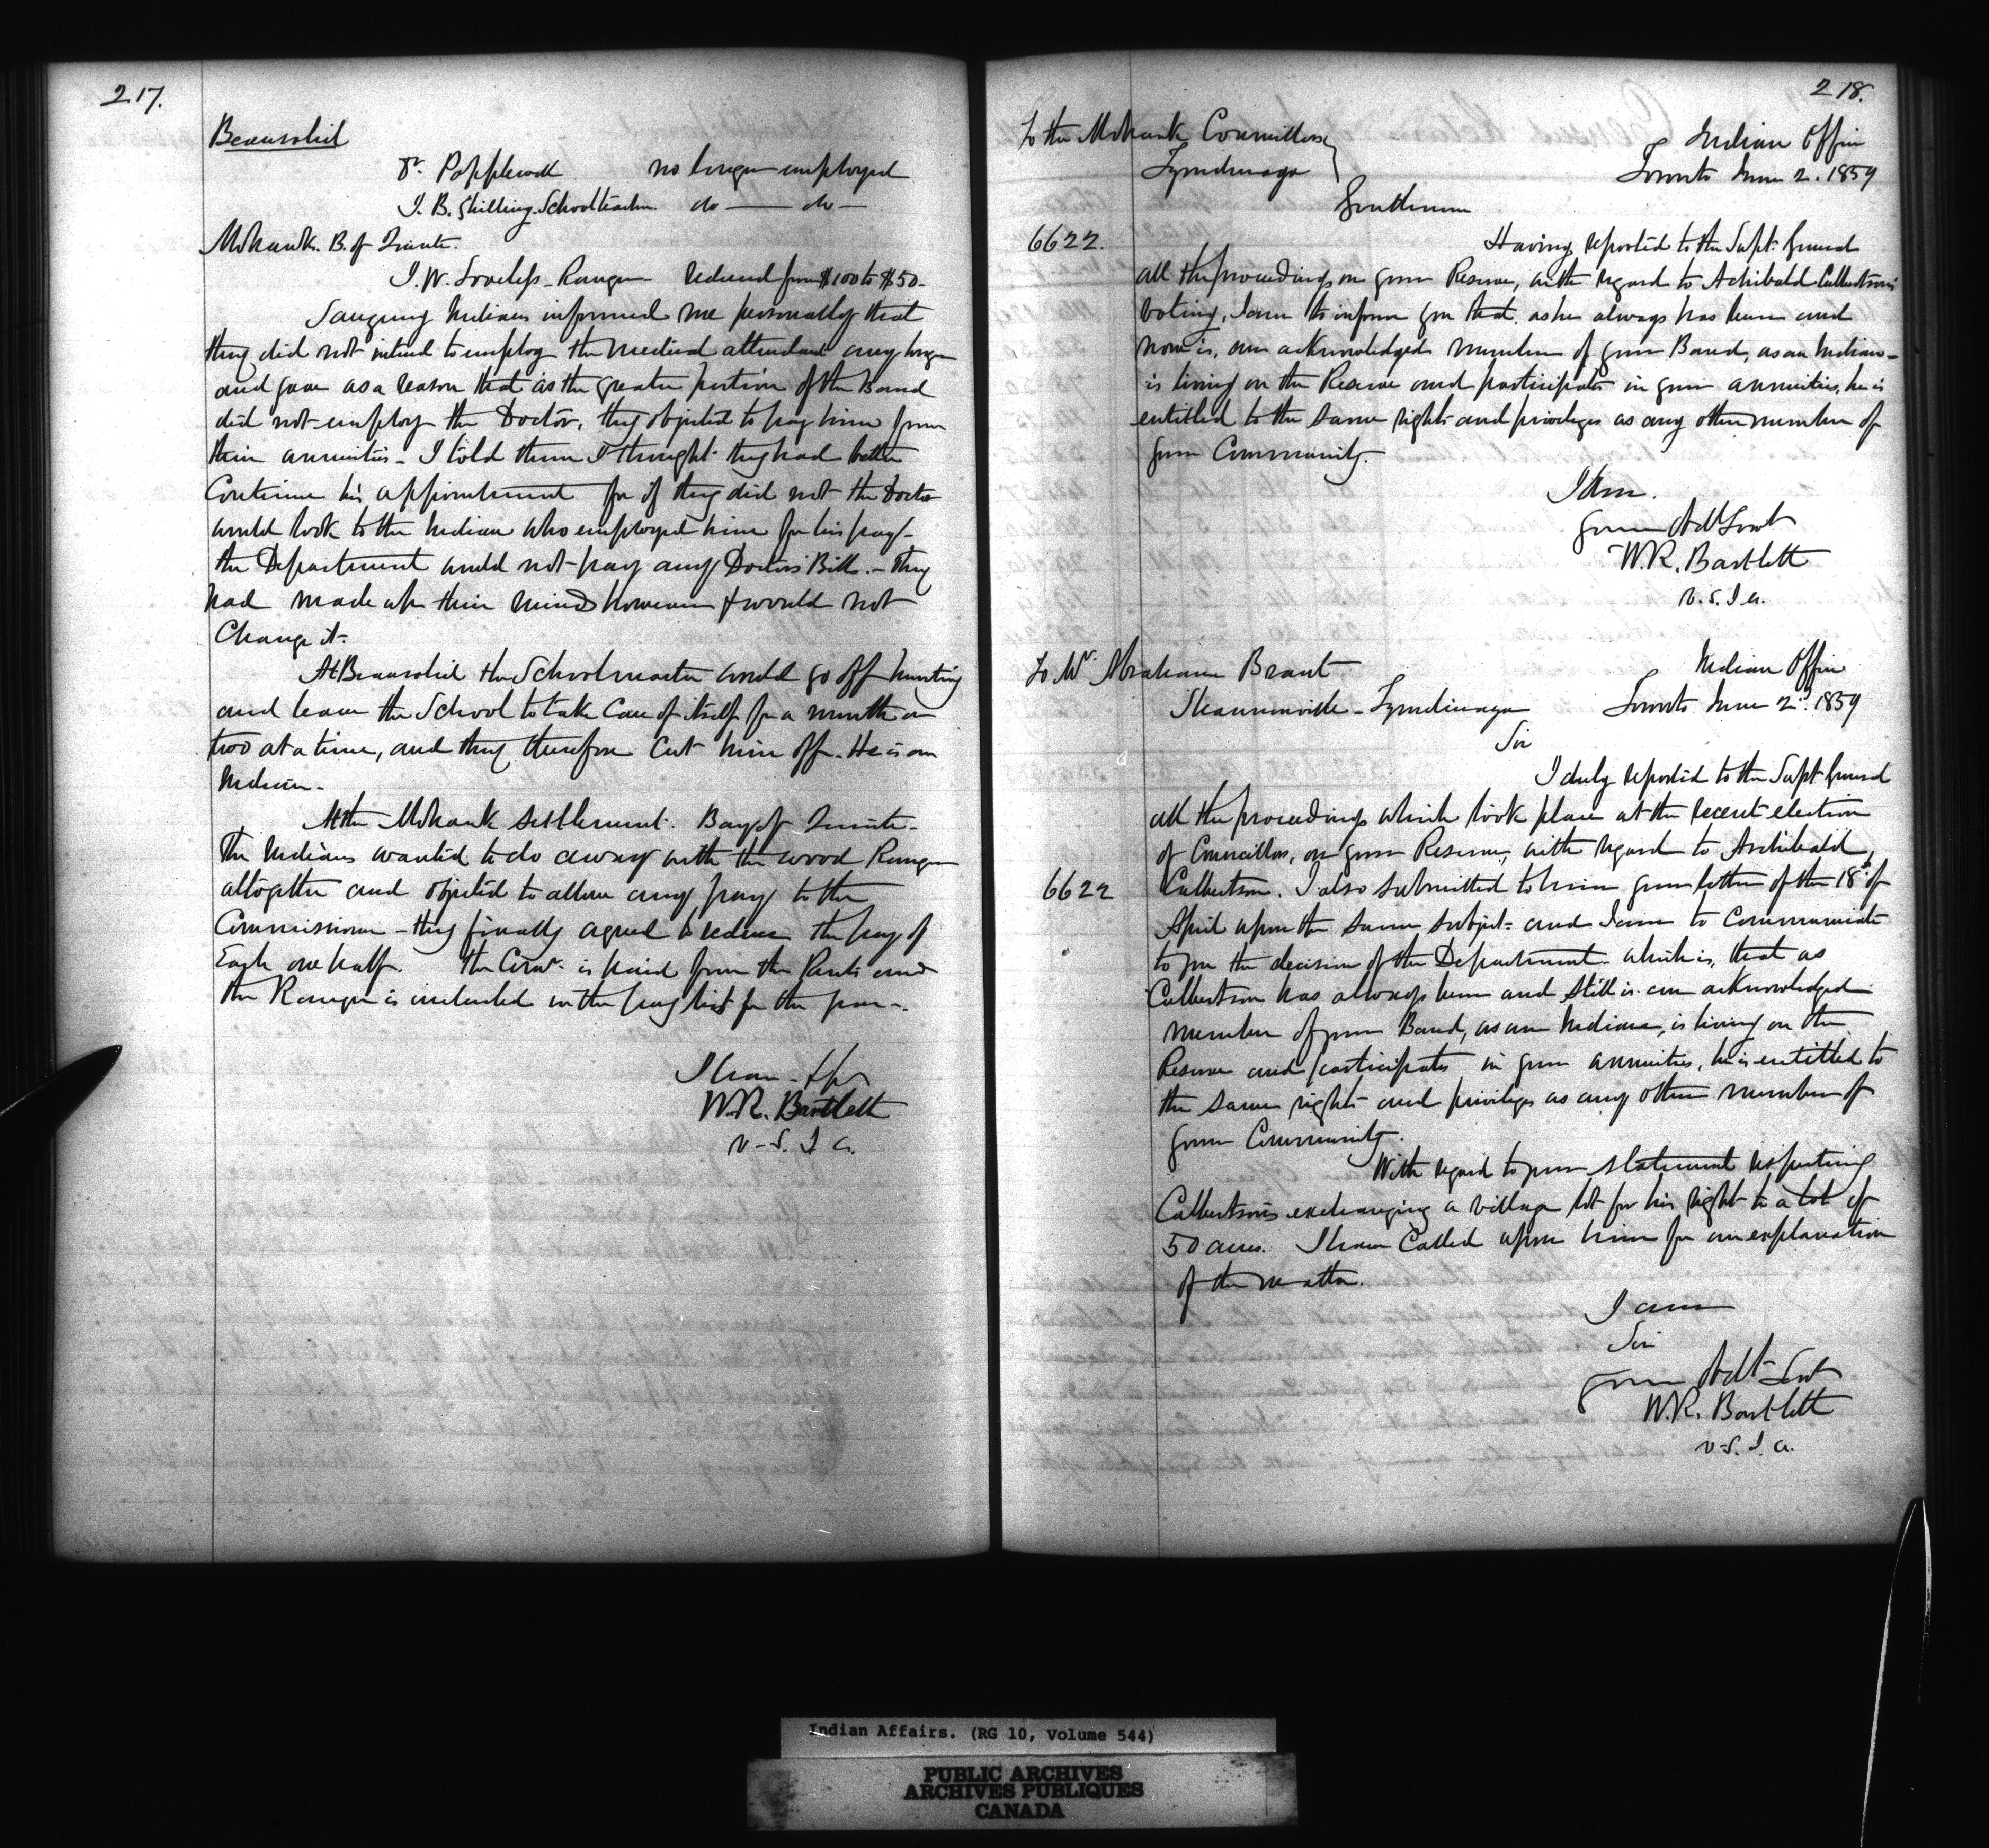 217.
Beausoliel
Dr. Popplewell no longer employed
J. B. Shilling. Schoolteacher. do — do —
Mohawk. B. of Quinte.
J. W. Loveless - Ranger reduced from $100 to $50 -
Saugeeng Indians informed me personally that
they did not intend to employ the medical attendant any longer
and gave as a reason that as the greater portion of the Band
did not employ the Doctor, they objected to pay him from
their annuities - I told them I thought they had better
Continue his appointment for if they did not the Doctor
would look to the Indian who employed him for his pay -
the Department would not pay any Doctors Bill. - They
had made up their minds however & would not
Change it -
At Beausoliel the Schoolmaster would go off hunting
and leave the School to take Care of itself for a month or
two at a time, and they therefore Cut him off. He is an
Indian -
At the Mohawk Settlement. Bay of Quinte -
The Indians wanted to do away with the wood Ranger
altogether and objected to allow any pay to the
Commissioner - they finally agreed to reduce the pay of
Each one half. The Comr. is paid from the Rents and
the Ranger is included in the pay list for the year -.
I have &c
W. R. Bartlett
V - S. I A.
218.
To the Mohawk Councillors
Tyendinaga
Indian Office
Toronto June 2. 1859
Gentlemen
6622.
Having reported to the Supt. General
all the proceedings on your Reserve, with regard to Archibald Culbertson's
voting, I am to inform you that, as he always has been and
now is, an acknowledged member of your Band, as an Indian -
is living on the Reserve and participates in your annuities, he is
entitled to the same rights and privileges as any other member of
your Community.
I am.
Your Obt Servt
W. R. Bartlett
V. S. I A.
To Mr. Abraham Brant
Shannonville - Tyendinaga
Indian Office
Toronto June 2nd. 1859
Sir
I duly reported to the Supt General
all the proceedings which took place at the recent election
of Councillors, on your Reserve, with regard to Archibald
6622
Culbertson. I also submitted to him your letter of the 18th of
April upon the same subject - and I am to Communicate
to you the decision of the Department - which is, that as
Culbertson has always been and still is an acknowledged
member of your Band, as an Indian, is living on the
Reserve and participates in your annuities, he is entitled to
the same rights and privileges as any other member of
your Community.
With regard to your statement respecting
Culbertson's exchanging a village lot for his right to a lot of
50 acres. I have Called upon him for an explanation
of the matter.
I am
Sir
Your Obt Servt
W. R. Bartlett
V - S. I. A.
Indian Affairs. (RG 10, Volume 544)
PUBLIC ARCHIVES
ARCHIVES PUBLIQUES
CANADA